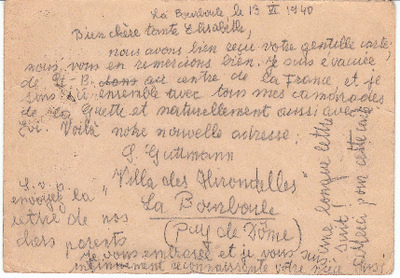 La Bourboule le 13 XI 1940
Bien chère tante Elisabelle,
nous avons bien reçu votre gentille carte,
nous vous en remercions bien. Je suis évacuée
de St-B. au centre de la France et je
suis ici ensemble avec tous mes camarades
de La Guette et naturellement aussi avec
Voilà notre nouvelle adresse:
S. Guttmann
"Villa des Hirondelles"
La Bourboule
(Puy de Dôme)
S. v. p.
envoyez la
lettre de nos
chers parents
Je vous embrasse et je vous suis
infiniment reconnaissante votre
une longue lettre
suit!
Merci pour cette